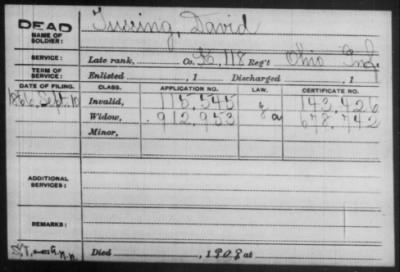 DEAD Tussing, David
NAME OF SOLDIER:
SERVICE: Late rank, Co. K, 118 Reg't Ohio Inf.
TERM OF SERVICE: Enlisted , 1 Discharged , 1
DATE OF FILING. CLASS. APPLICATION NO. LAW. CERTIFICATE NO.
1866, Sept. 10 Invalid, 115,545 143,426
Widow, 912,953 678,742
Minor,
ADDITIONAL SERVICES:
REMARKS:
Died , 1908 at